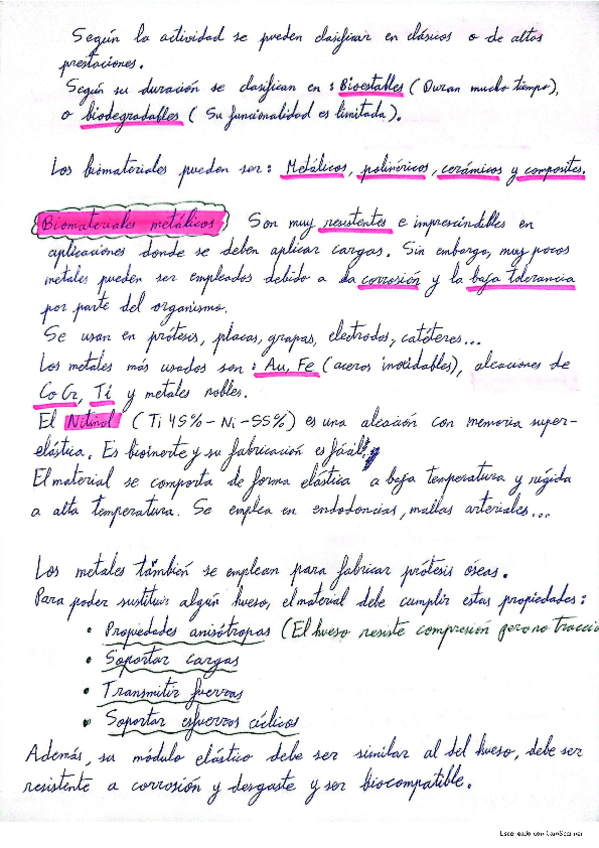 Según la actividad se pueden clasificar en clásicos o de altas
prestaciones.
Según su duración se clasifican en : Bioestables ( Duran mucho tiempo),
o biodegradables ( Su funcionalidad es limitada).
Los biomateriales pueden ser : Metálicos, poliméricos, cerámicos y composites.
Biomateriales metálicos) Son muy resistentes e imprescindibles en
aplicaciones donde se deben aplicar cargas. Sin embargo, muy pocos
metales pueden ser empleados debido a la corrosión y la baja tolerancia
por parte del organismo.
Se usan en prótesis, placas, grapas, electrodos, catéteres...
Los metales más usados son : Au, Fe (aceros inoxidables), aleaciones de
CoCr, Ti y metales nobles.
El Nitinol ( Ti 45% - Ni - 55%) es una aleación con memoria super-
elástica. Es bioinerte y su fabricación es fácil.
El material se comporta de forma elástica a baja temperatura y rígida
a alta temperatura. Se emplea en endodoncias, mallas arteriales...
Los metales también se emplean para fabricar prótesis óseas.
Para poder sustituir algún hueso, el material debe cumplir estas propiedades :
• Propiedades anisótropas (El hueso resiste compresión pero no tracció
• Soportar cargas
• Transmitir fuerzas
• Soportar esfuerzos cíclicos
Además, su módulo elástico debe ser similar al del hueso, debe ser
resistente a corrosión y desgaste y ser biocompatible.
Escaneado con CamScanner